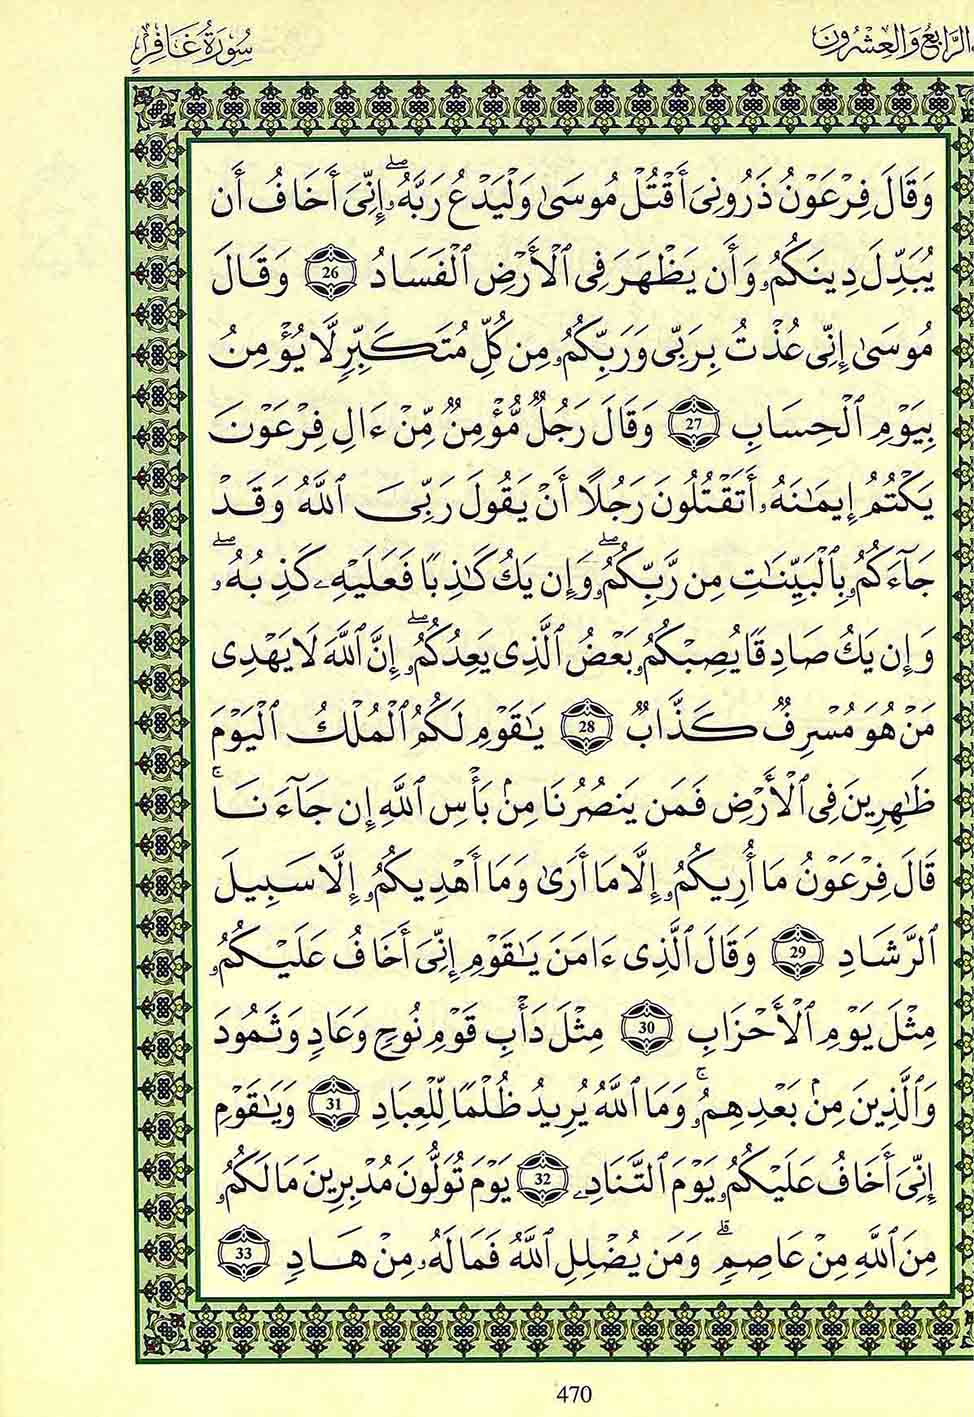 الرَّابِعُ وَالعِشْرُونَ
سُورَةُ غَافِرٍ
وَقَالَ فِرْعَوْنُ ذَرُونِىَ أَقْتُلْ مُوسَىٰ وَلْيَدْعُ رَبَّهُۥۖ إِنِّىَ أَخَافُ أَن
يُبَدِّلَ دِينَكُمُۥ وَأَن يَظْهَرَ فِى ٱلْأَرْضِ ٱلْفَسَادُ 26 وَقَالَ
مُوسَىٰ إِنِّى عُذْتُ بِرَبِّى وَرَبِّكُمُۥ مِن كُلِّ مُتَكَبِّرٍ لَّا يُؤْمِنُ
بِيَوْمِ ٱلْحِسَابِ 27 وَقَالَ رَجُلٌ مُّؤْمِنٌ مِّنْ ءَالِ فِرْعَوْنَ
يَكْتُمُ إِيمَٰنَهُۥ أَتَقْتُلُونَ رَجُلًا أَنْ يَقُولَ رَبِّىَ ٱللَّهُ وَقَدْ
جَآءَكُمُۥ بِٱلْبَيِّنَٰتِ مِن رَّبِّكُمُۥۖ وَإِن يَكُ كَٰذِبًا فَعَلَيْهِۦ كَذِبُهُۥۖ
وَإِن يَكُ صَادِقًا يُصِبْكُمُۥ بَعْضُ ٱلَّذِى يَعِدُكُمُۥۖ إِنَّ ٱللَّهَ لَا يَهْدِى
مَنْ هُوَ مُسْرِفٌ كَذَّابٌ 28 يَٰقَوْمِ لَكُمُ ٱلْمُلْكُ ٱلْيَوْمَ
ظَٰهِرِينَ فِى ٱلْأَرْضِ فَمَن يَنصُرُنَا مِنۢ بَأْسِ ٱللَّهِ إِن جَآءَنَاۚ
قَالَ فِرْعَوْنُ مَا أُرِيكُمُۥ إِلَّا مَا أَرَىٰ وَمَا أَهْدِيكُمُۥ إِلَّا سَبِيلَ
ٱلرَّشَادِ 29 وَقَالَ ٱلَّذِى ءَامَنَ يَٰقَوْمِ إِنِّىَ أَخَافُ عَلَيْكُمُۥ
مِثْلَ يَوْمِ ٱلْأَحْزَابِ 30 مِثْلَ دَأْبِ قَوْمِ نُوحٍ وَعَادٍ وَثَمُودَ
وَٱلَّذِينَ مِنۢ بَعْدِهِمُۥۚ وَمَا ٱللَّهُ يُرِيدُ ظُلْمًا لِّلْعِبَادِ 31 وَيَٰقَوْمِ
إِنِّىَ أَخَافُ عَلَيْكُمُۥ يَوْمَ ٱلتَّنَادِۦ 32 يَوْمَ تُوَلُّونَ مُدْبِرِينَ مَا لَكُمُۥ
مِنَ ٱللَّهِ مِنْ عَاصِمٍۗ وَمَن يُضْلِلِ ٱللَّهُ فَمَا لَهُۥ مِنْ هَادٍ 33
470